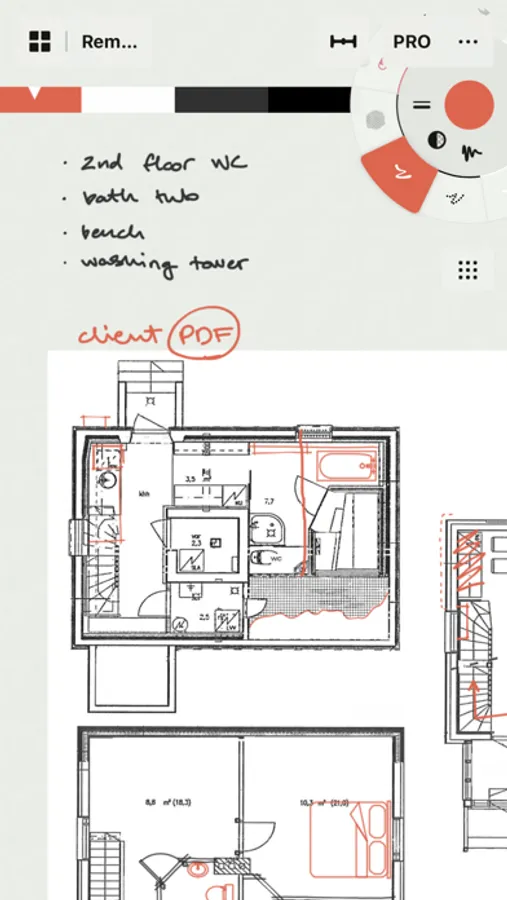 Rem...
PRO
· 2nd floor WC
· bath tub
· bench
· washing tower
client PDF
3,5
khh
7,7
var
2,3
WC
2,5
8,6 m² (18,3)
10,3 m² (21,0)